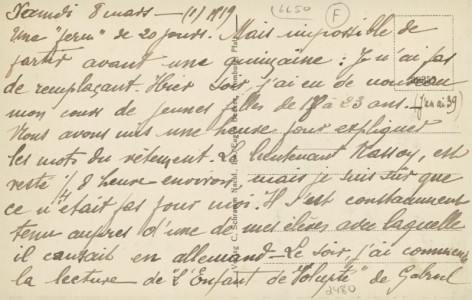 Samedi 8 mars — (1) 1919
Une "ferm" de 20 jours. Mais impossible de
partir avant une quinzaine : Je n'ai pas
de remplaçant. Hier soir, j'ai eu de nouveau
mon cours de jeunes filles de 17 à 23 ans. (j'en ai 39)
Nous avons mis une heure pour expliquer
les mots du vêtement. Le lieutenant est
resté 1/4 d'heure environ, mais je suis sûr que
ce n'était pas pour moi. Il s'est constamment
tenu auprès d'une de mes élèves avec laquelle
il causait en allemand — Le soir, j'ai commencé
la lecture de "L'Enfant de Volupté" de Gabriel
6650
F
2480